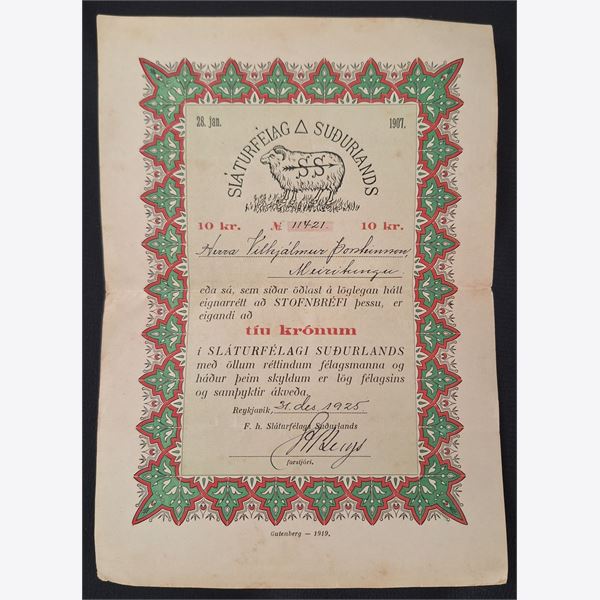 28. jan.
1907.
SLÁTURFÉLAG △ SUÐURLANDS
S S
10 kr. № 11421 10 kr.
Herra Vilhjálmur Þorsteinsson,
Meiritungu
eða sá, sem síðar öðlast á löglegan hátt
eignarrétt að STOFNBRÉFI þessu, er
eigandi að
tíu krónum
í SLÁTURFÉLAGI SUÐURLANDS
með öllum réttindum félagsmanna og
háður þeim skyldum er lög félagsins
og samþyktir ákveða.
Reykjavík, 31. des 1925
F. h. Sláturfélags Suðurlands
forstjóri.
Gutenberg — 1919.